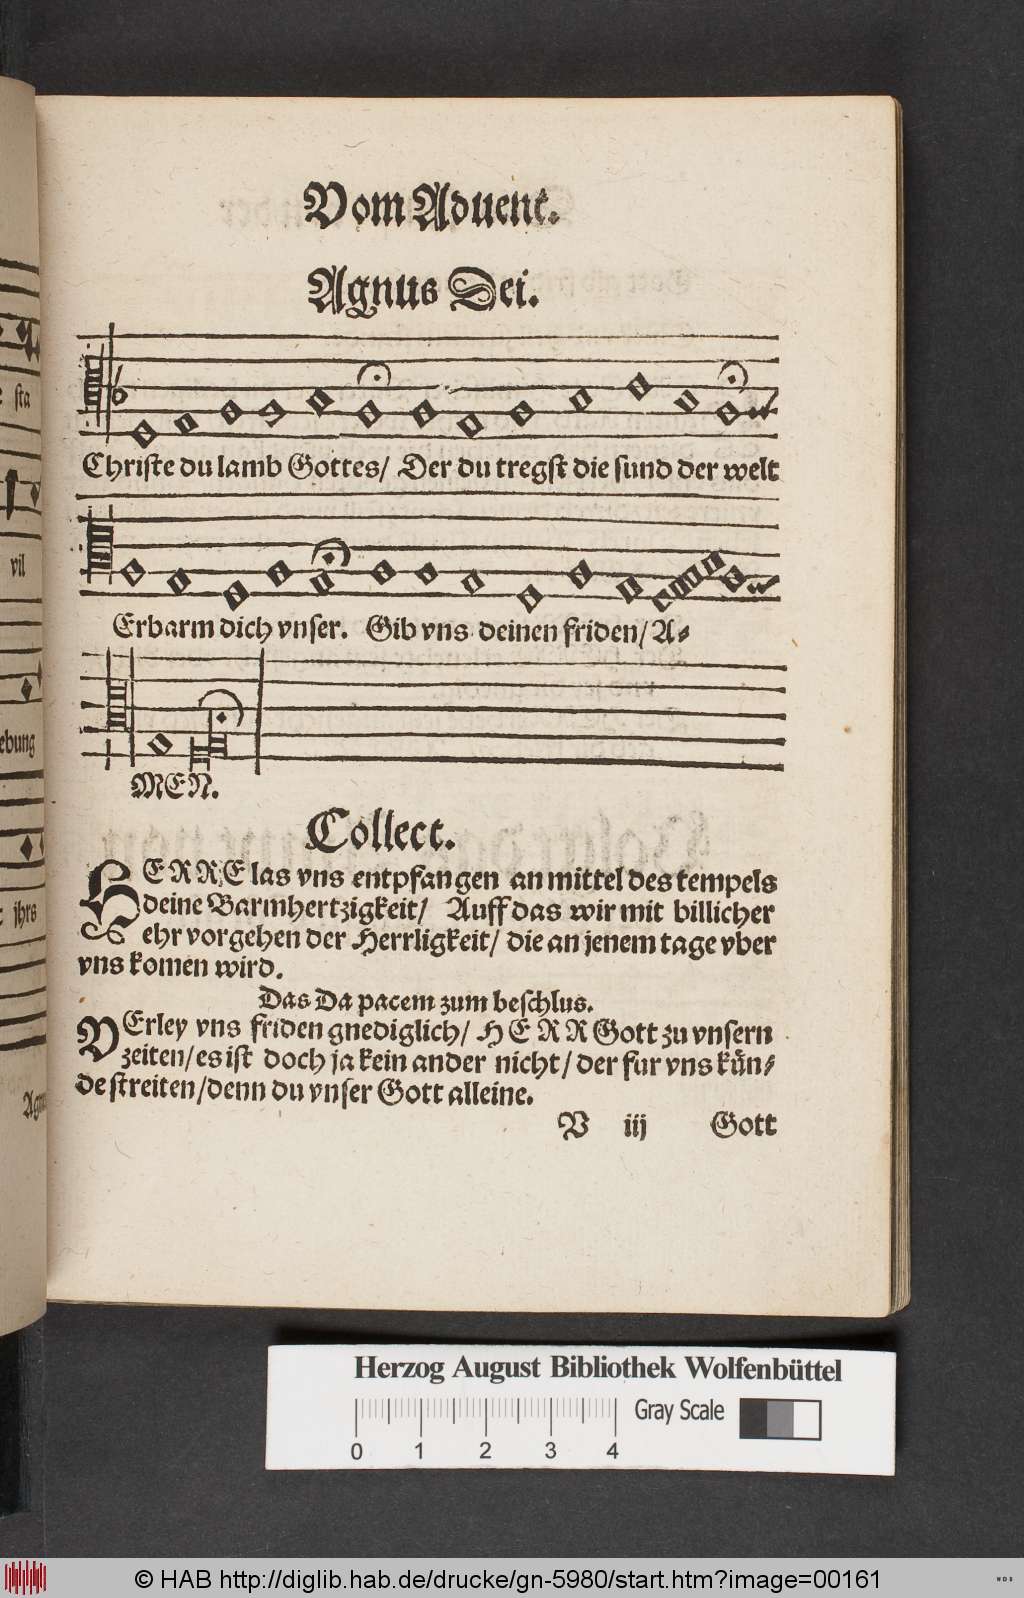 Vom Aduent.
Agnus Dei.
Christe du lamb Gottes/ Der du tregst die sund der welt
Erbarm dich vnser. Gib vns deinen friden/ A⸗
MEN.
Collect.
HERRE las vns entpfangen an mittel des tempels
deine Barmhertzigkeit/ Auff das wir mit billicher
ehr vorgehen der Herrligkeit/ die an jenem tage vber
vns komen wird.
Das Da pacem zum beschlus.
VErley vns friden gnediglich/ HERR Gott zu vnsern
zeiten/ es ist doch ja kein ander nicht/ der fur vns kün⸗
de streiten/ denn du vnser Gott alleine.
V iij Gott
sta
vil
ebung
jhrs
Agnu
Herzog August Bibliothek Wolfenbüttel
Gray Scale
0 1 2 3 4
© HAB http://diglib.hab.de/drucke/gn-5980/start.htm?image=00161